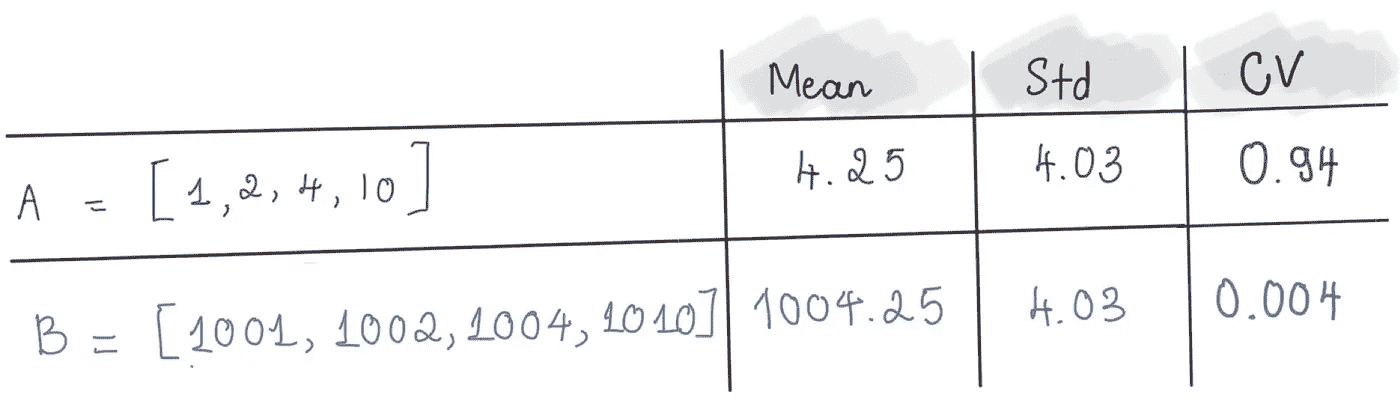 Mean Std CV
A = [1, 2, 4, 10] 4.25 4.03 0.94
B = [1001, 1002, 1004, 1010] 1004.25 4.03 0.004